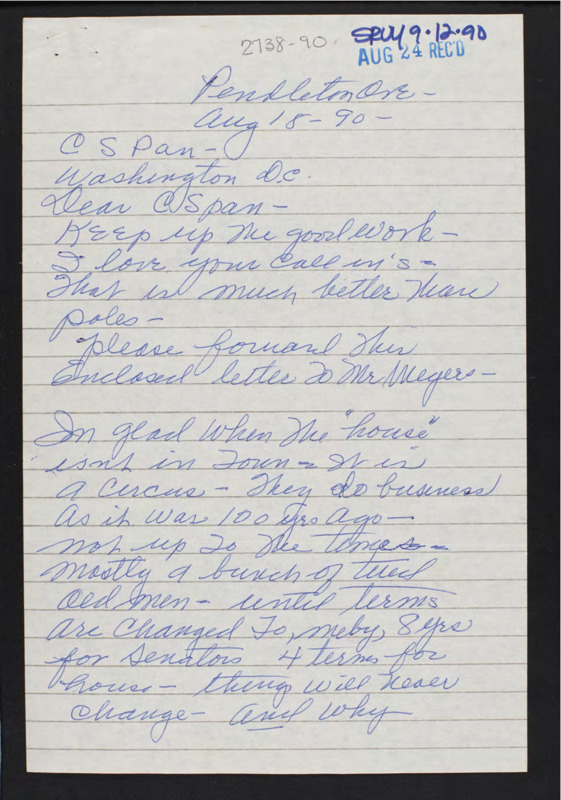 2738-90 SRW 9.12.90
AUG 24 REC'D
Pendleton Ore-
Aug 18-90-
C S Pan-
Washington D.C.
Dear C Span-
Keep up the good work-
I love your Call in's-
That is much better than
poles-
please forward this
Enclosed letter to Mr Meyers-
Im glad when the "house"
isnt in Town- It is
a Circus- They do business
as it was 100 yrs ago-
not up to the times-
mostly a bunch of tired
old men- until terms
are changed to, meby, 8 yrs
for Senators 4 terms for
house- things will never
change- and why